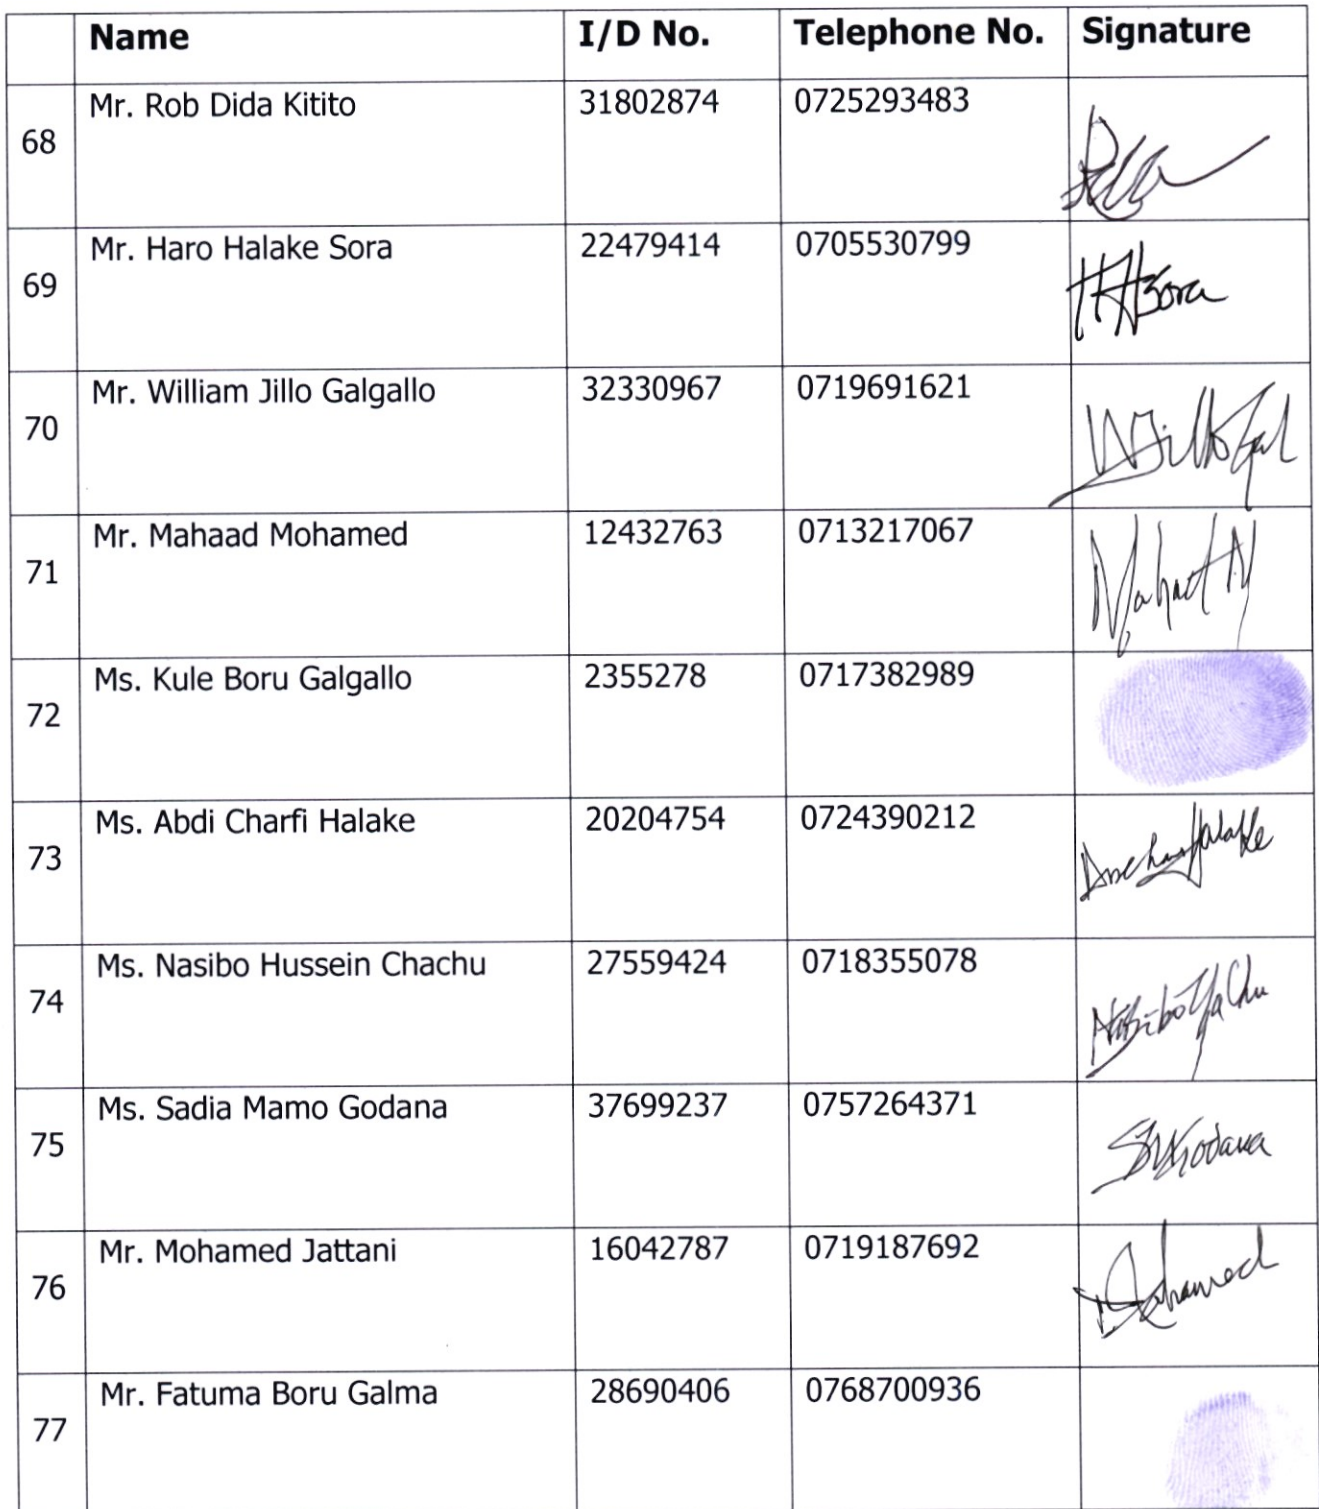 Name I/D No. Telephone No. Signature
68 Mr. Rob Dida Kitito 31802874 0725293483
69 Mr. Haro Halake Sora 22479414 0705530799 HHSora
70 Mr. William Jillo Galgallo 32330967 0719691621
71 Mr. Mahaad Mohamed 12432763 0713217067
72 Ms. Kule Boru Galgallo 2355278 0717382989
73 Ms. Abdi Charfi Halake 20204754 0724390212
74 Ms. Nasibo Hussein Chachu 27559424 0718355078
75 Ms. Sadia Mamo Godana 37699237 0757264371
76 Mr. Mohamed Jattani 16042787 0719187692 Mohamed
77 Mr. Fatuma Boru Galma 28690406 0768700936